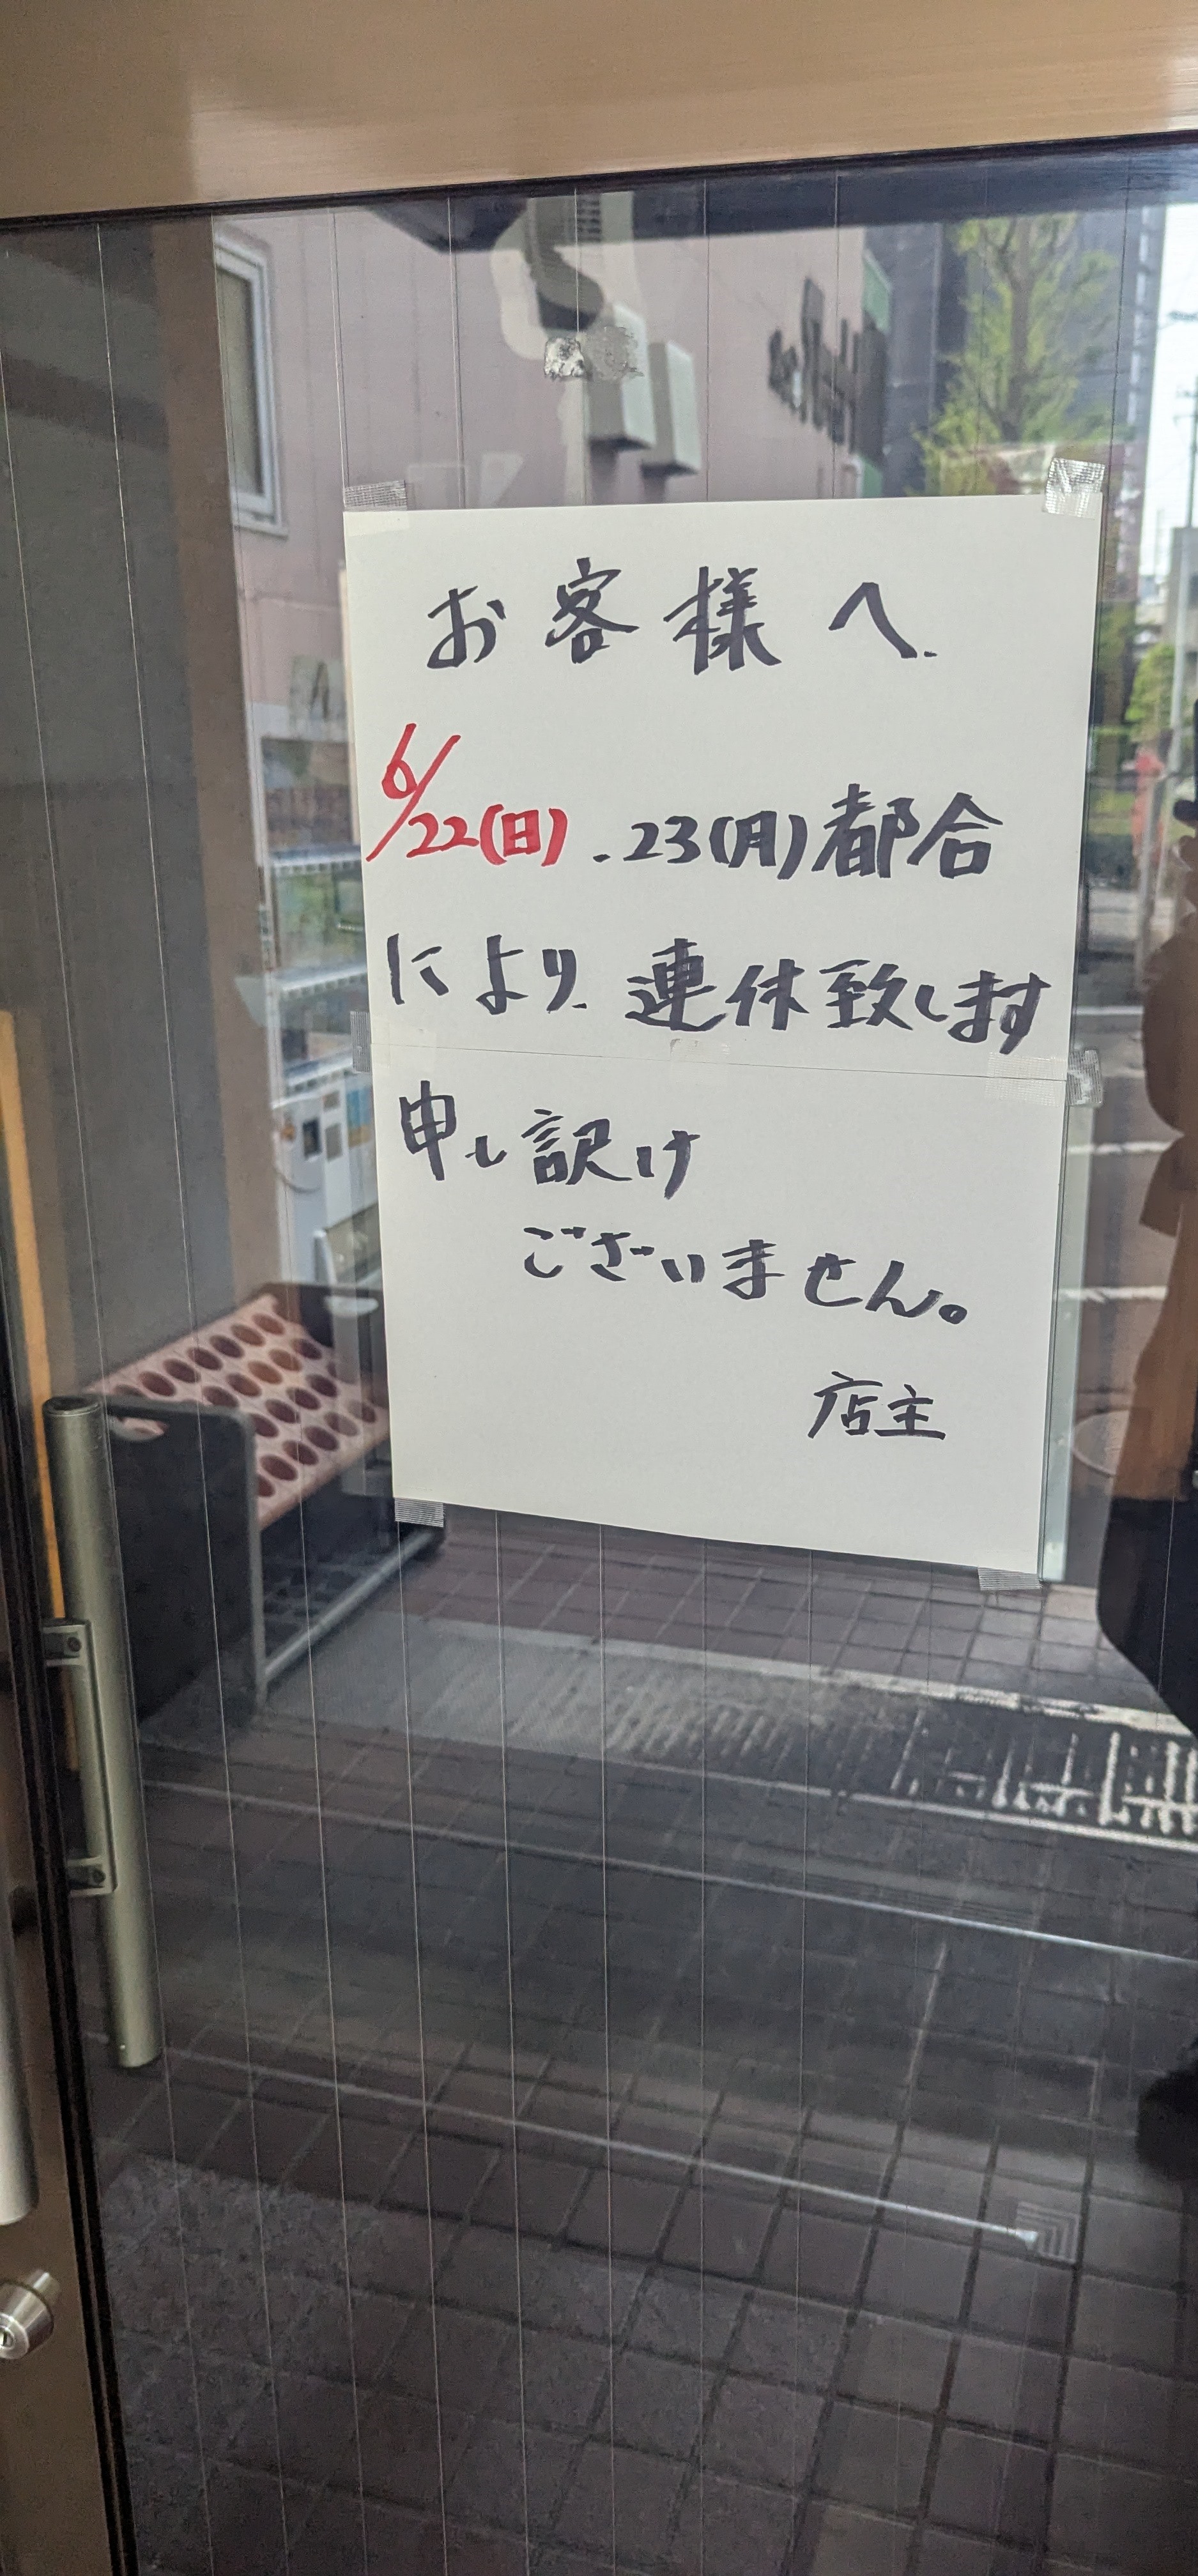 お客様へ.
6/22(日).23(月)都合
により.連休致します
申し訳け
ございません。
店主